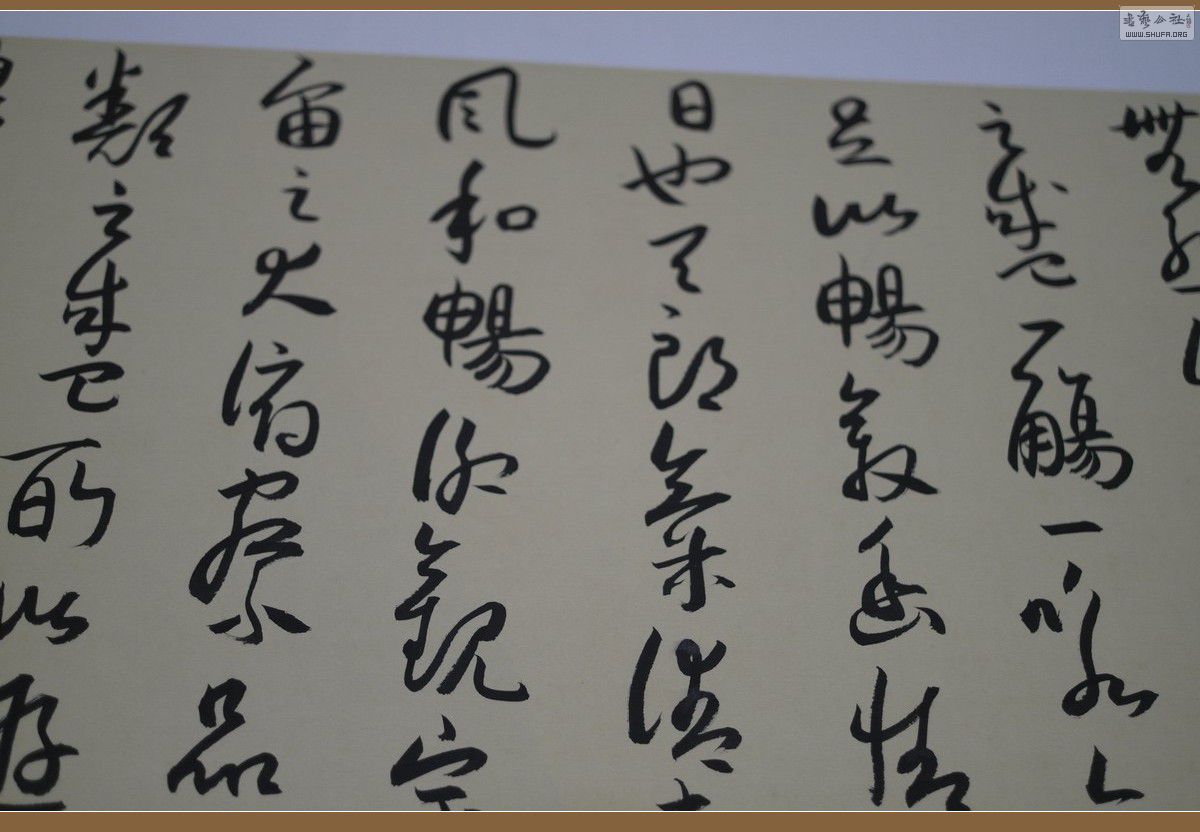 無絲
之盛一觴一詠
足以暢敘幽情
日也天朗氣清
風和暢仰觀宇
宙之大俯察品
類之盛所以遊
書藝公社
WWW.SHUFA.ORG